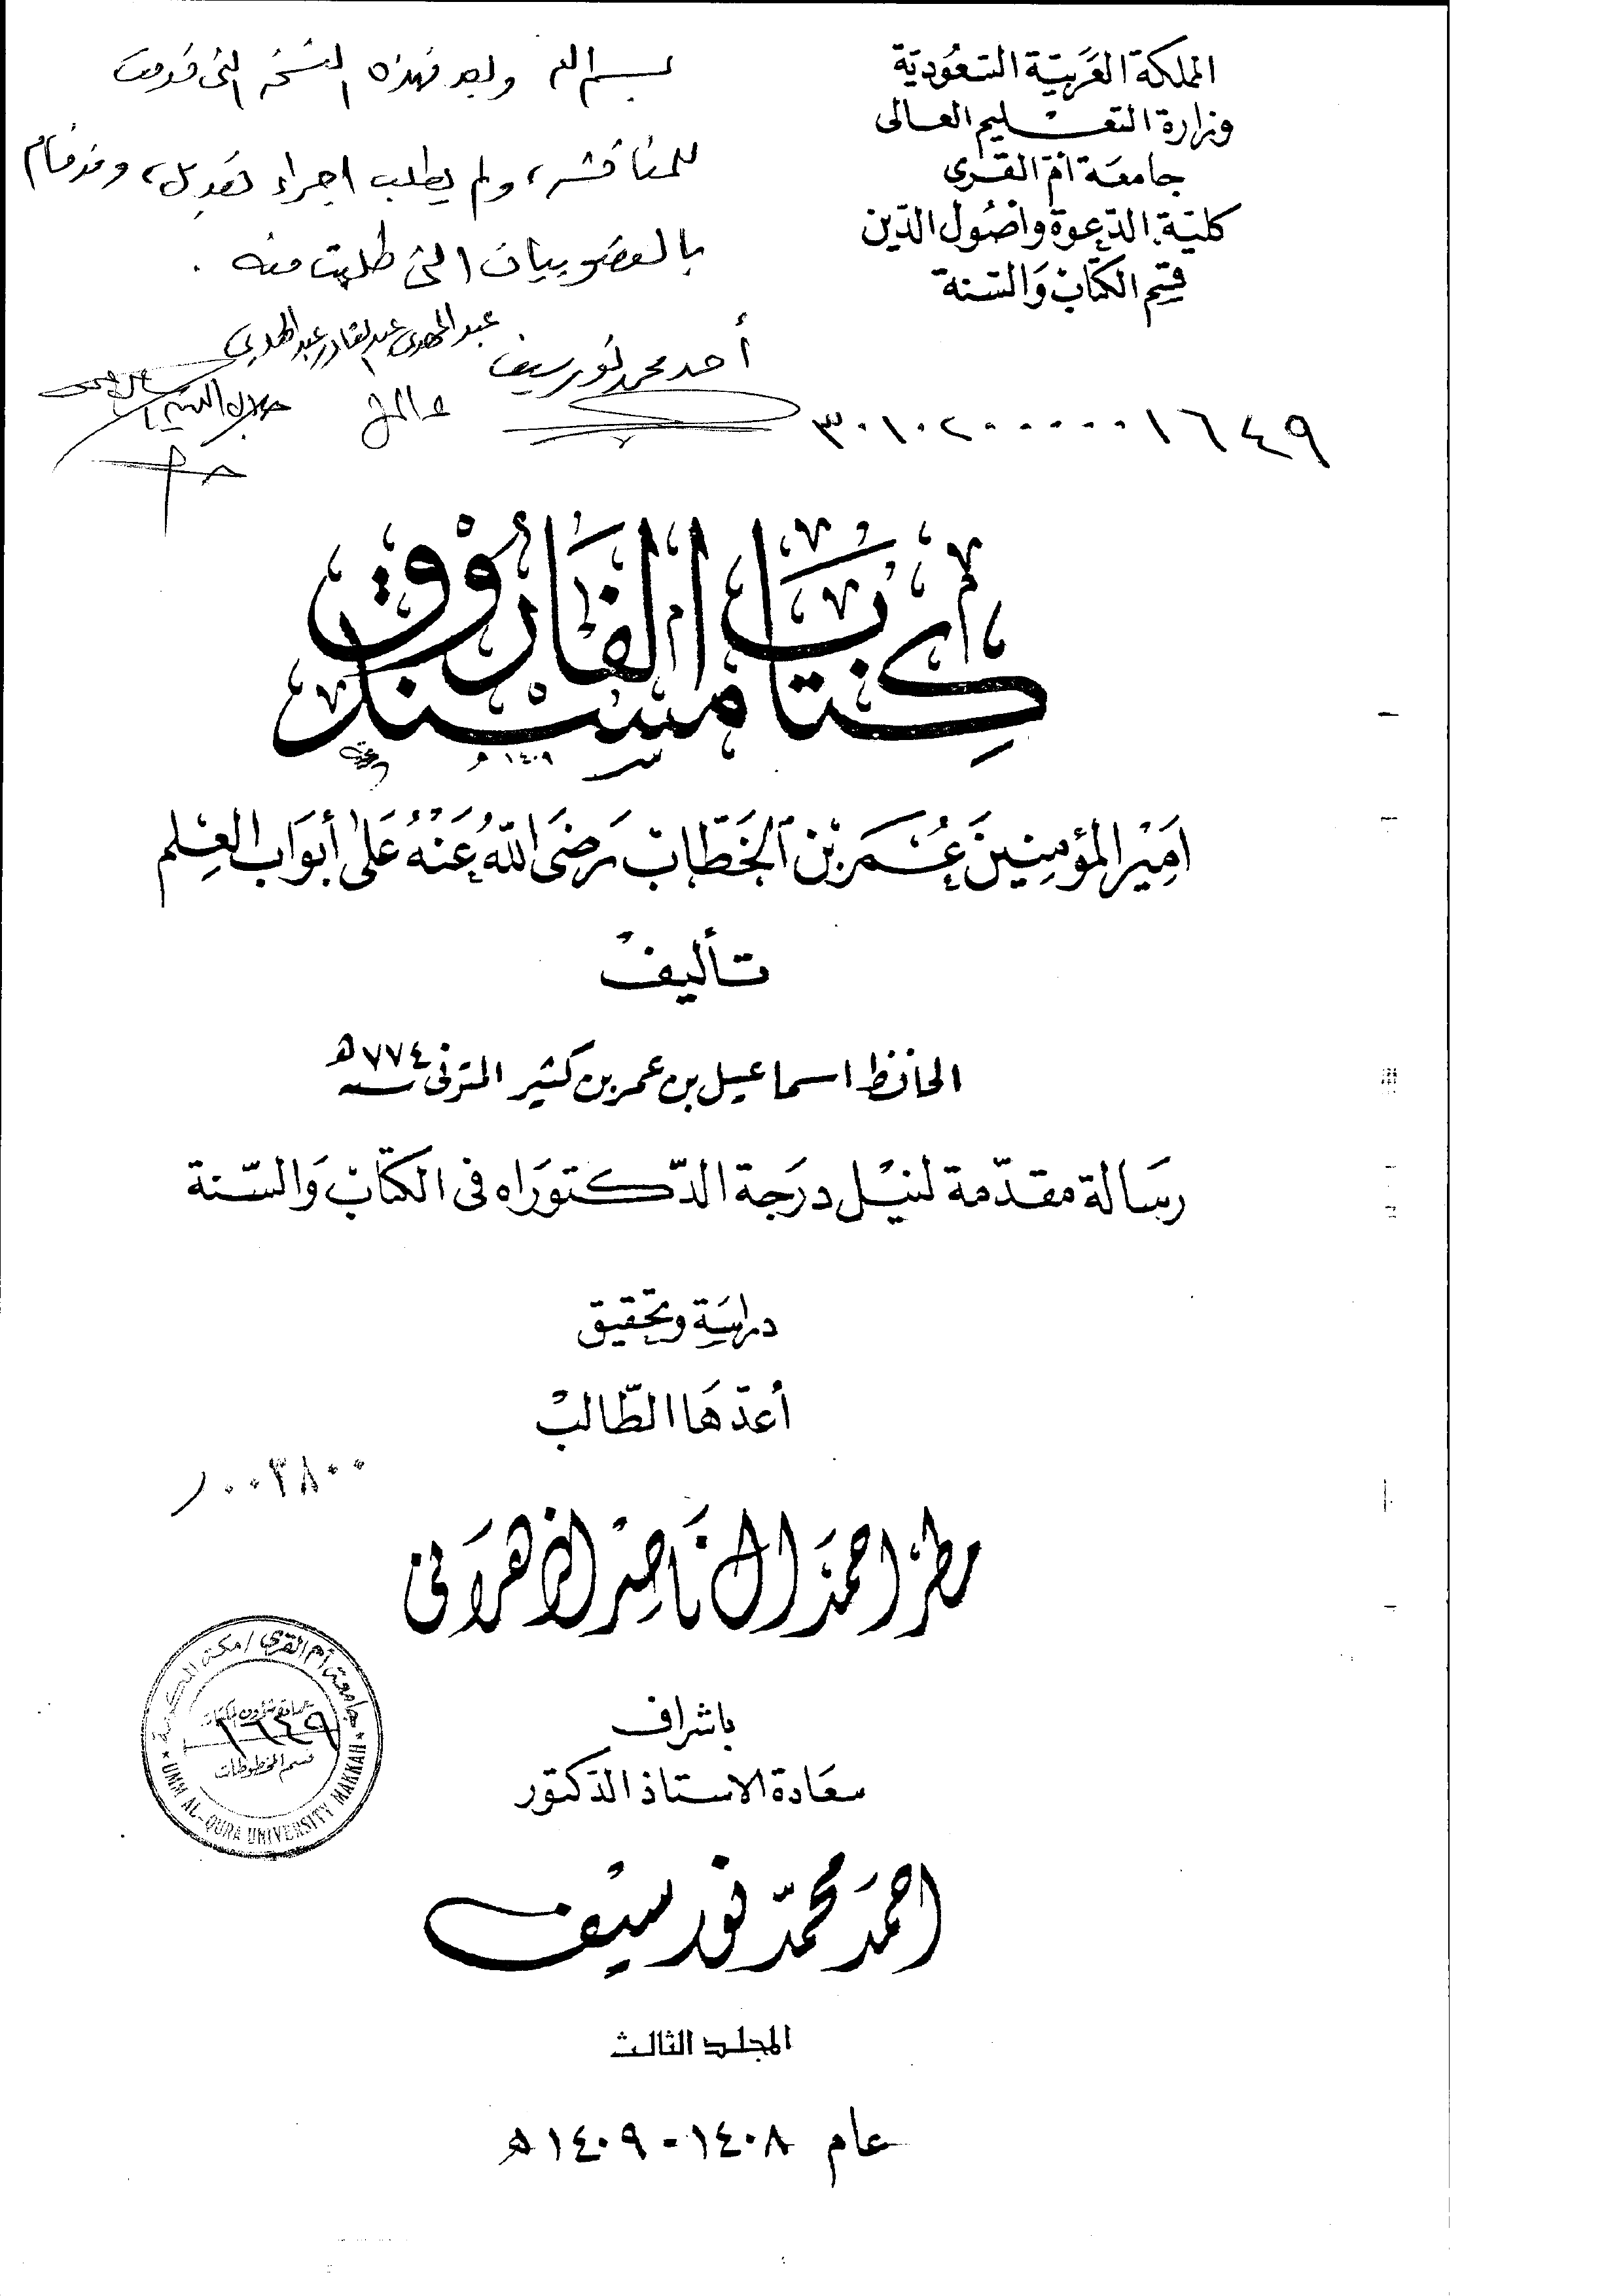 المملكة العَربيّة السّعُوديّة
وزارة التعْليم العالى
جامعَة أمّ القُرى
كليّة الدّعوة وأصُول الدّين
قِسِم الكتَابْ وَالسّنة
بسم الله وبعد فهذه النسخة التى قدمت
للمناقشة، ولم يطلب اجراء تعديل، وقد قام
بالتصويبات التى طلبت منه .
عبدالمهدى عبدالقادر عبدالهادي
أحمد محمد نور سيف
٣٠١٠٢٠٠٠٠٠١٦٤٩
كِتَابُ مُسْنَد الفَارُوْق
١٤٠٩ هـ
امَيْر المؤمِنِينَ عُمَر بْن الخَطَّابْ رَضَى اللّهُ عَنْهُ عَلىٰ أبوَاب العِلْم
تأليفْ
الحافظ اسماعيل بن عمر بن كثير المتوفى سنة ٧٧٤هـ
رسَالة مقدّمة لنيْل درَجة الدّكتورَاه فى الكتَابْ وَالسّنة
دراسَة وتحقيق
أعدّهَا الطّالبْ
٠٠٣٨٠٠
مطر احمَد آل نَاصِرْ الزهرَانى
جامعة أم القرى / مكة المكرمة
عمادة شؤون المكتبات
١٦٤٩
قسم المخطوطات
UMM AL-QURA UNIVERSITY MAKKAH
باشراف
سعَادة الاستاذ الدّكتور
احمَد محمّد نور سيْف
المجلد الثالث
عام ١٤٠٨ - ١٤٠٩ هـ